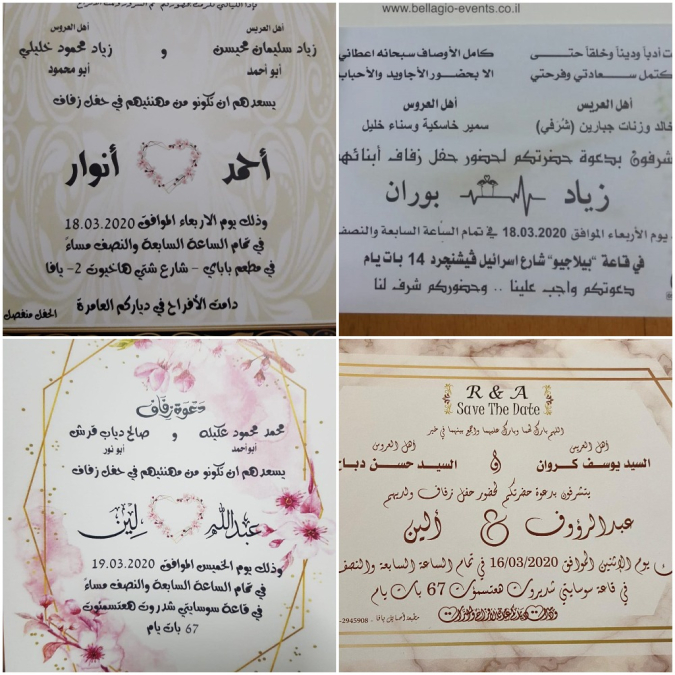 أهل العريس
زياد سليمان محيسن
أبو أحمد
و
أهل العروس
زياد محمود خليلي
أبو محمود
يسعدهم ان تكونو من مهنئيهم في حفل زفاف
أحمد أنوار
وذلك يوم الاربعاء الموافق 18.03.2020
في تمام الساعة السابعة والنصف مساءً
في مطعم باباي - شارع شتي هاخيوت 2- يافا
دامت الأفراح في دياركم العامرة
الحفل منفصل
www.bellagio-events.co.il
أدباً وديناً وخلقاً حتــى كامل الأوصاف سبحانه اعطاني
كتمل سـعادتي وفرحتي الا بحضور الأجاويد والأحباب
أهل العريس
خالد وزنات جبارين (شرفي)
أهل العروس
سمير خاسكية وسناء خليل
شرفون بدعوة حضرتكم لحضور حفل زفاف أبنائهم
زياد بوران
يوم الأربعاء الموافق 18.03.2020 في تمام الساعة السابعة والنصف
في قاعة "بيلاجيو" شارع اسرائيل ڤيشنچرد 14 بات يام
دعوتكم واجب علينا .. وحضوركم شرف لنا
دعوة زفاف
محمد محمود عكيله
أبو أحمد
و
صالح دياب قرش
أبو نور
يسعدهم ان تكونو من مهنئيهم في حفل زفاف
عبدالله لين
وذلك يوم الخميس الموافق 19.03.2020
في تمام الساعة السابعة والنصف مساءً
في قاعة سوسايتي شدروت هعتسمئوت
67 بات يام
R & A
Save The Date
اللهم بارك لهما وبارك عليهما واجمع بينهما في خير
أهل العريس
السيد يوسف كروان
و
أهل العروس
السيد حسن دباغ
يتشرفون بدعوة حضرتكم لحضور حفل زفاف ولديهم
عبدالرؤوف & ألين
يوم الإثنين الموافق 16/03/2020 في تمام الساعة السابعة والنصف
في قاعة سوسايتي شديروت هعتسمؤت 67 بات يام
2945908-